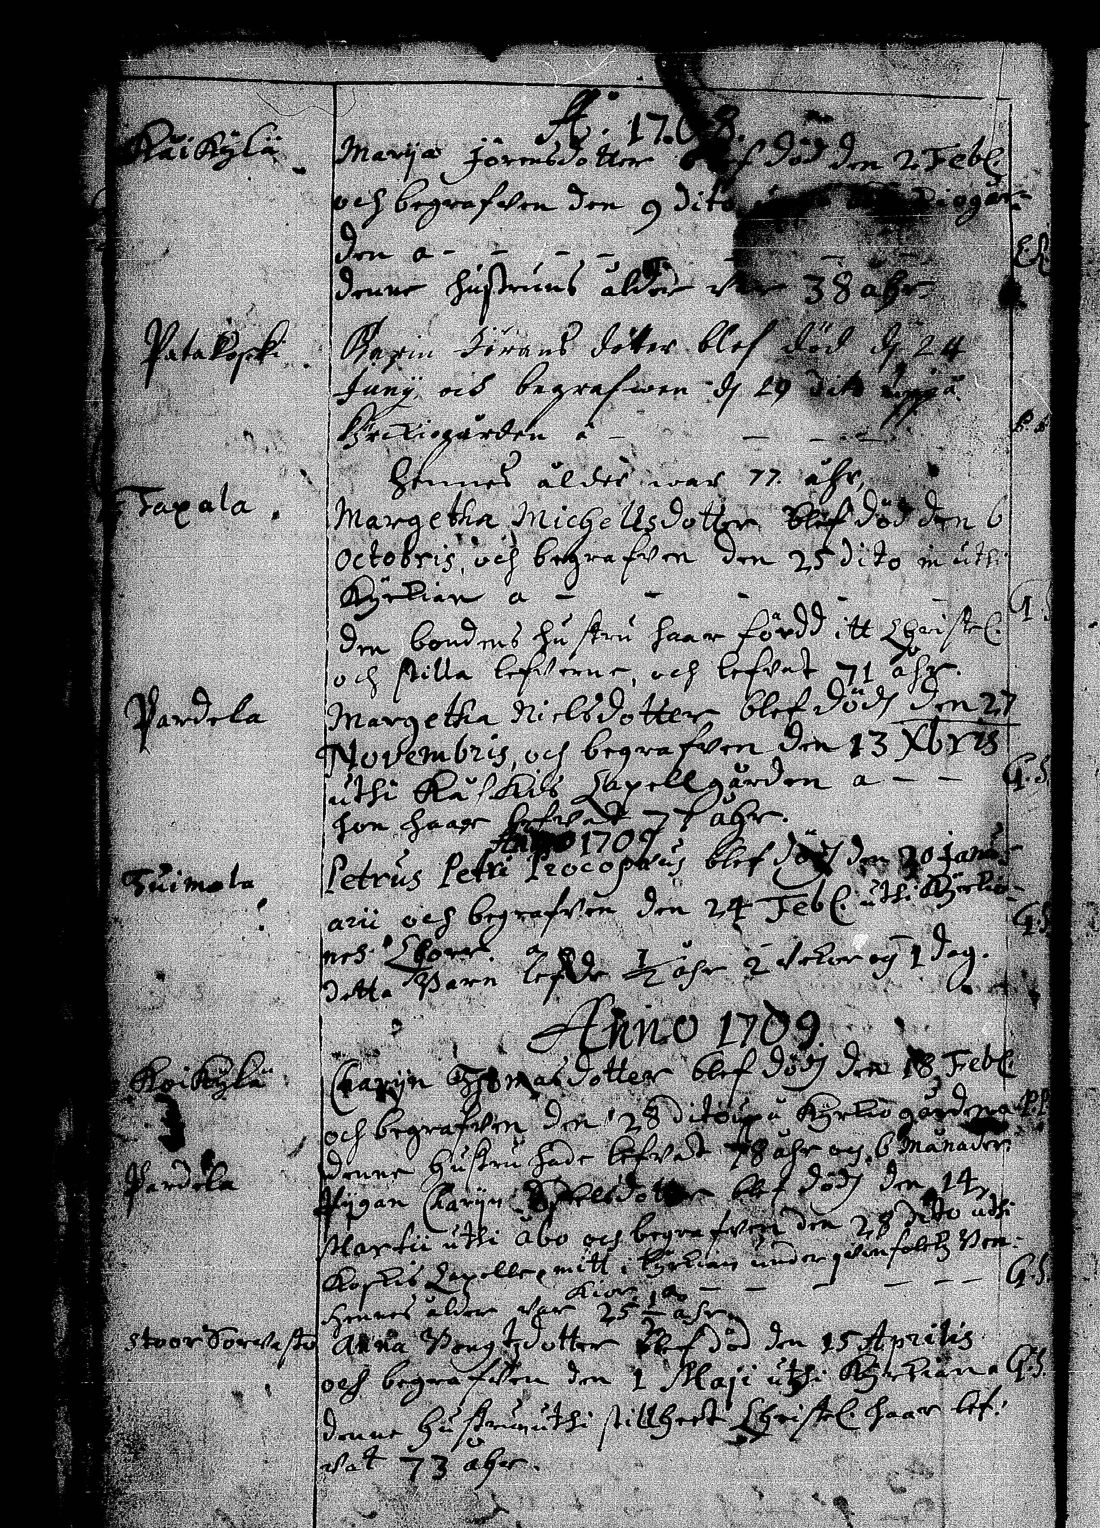 A:o 1708.
Käikÿlä Marÿa Jörensdotter blef död den 2 Febl.
och begrafven den 9 dito
den a - - - -
denne hustruns ålder var 38 åhr
Patakoski Karin Jörans dotter blef död dh 24
Junÿ och begrafwen dh 29 dito uppå
Kÿrkiogården à - - - -
hennes ålder war 77. åhr,
Taxala Margetha Michellsdotter blef död den 6
Octobris, och begrafven den 25 dito in uthi
Kÿrkian a - - - - G.
den bondens hustru haar fördd itt Christel.
och stilla lefverne, och lefvat 71 åhr.
Pardela Margetha Nielsdotter blef dödh den 27
Novembris, och begrafven den 13 Xbris
uthi Kaskis Capellgården a - - G.S.
hon haar lefvat 77 åhr.
Anno 1709
Tuimala Petrus Petri Procopæus blef dödh den 20 Janu-
arii och begrafven den 24 Febl. uthi Kÿrkio- G.S.
nes Chorr. a
detta Barn lefde ½ åhr 2 vekor og 1 dag.
Anno 1709
Koikÿlä Carijn Thomasdotter blef dödh den 18 Febl.
och begrafven den 28 dito uppå Kÿrkiogården a P.P.
denne hustru hade lefvat 78 åhr og 6 Månader.
Pardela Pÿgan Carijn dotter blef dödh den 14
Martii uthi Åbo och begrafven den 28 dito uthi
Koskis Capelle, mitt i Kÿrkian under qvinfolkz Ven-
kior, a - - - - G.S.
hennes ålder var 25 ½ åhr
Stoor Sorvasto Anna Bengtzdotter blef död den 15 Aprilis
och begrafven den 1 Maji uthi Kÿrkian a G.S.
denne hustru uthi stillheet Christel. haar lef-
vat 73 åhr.